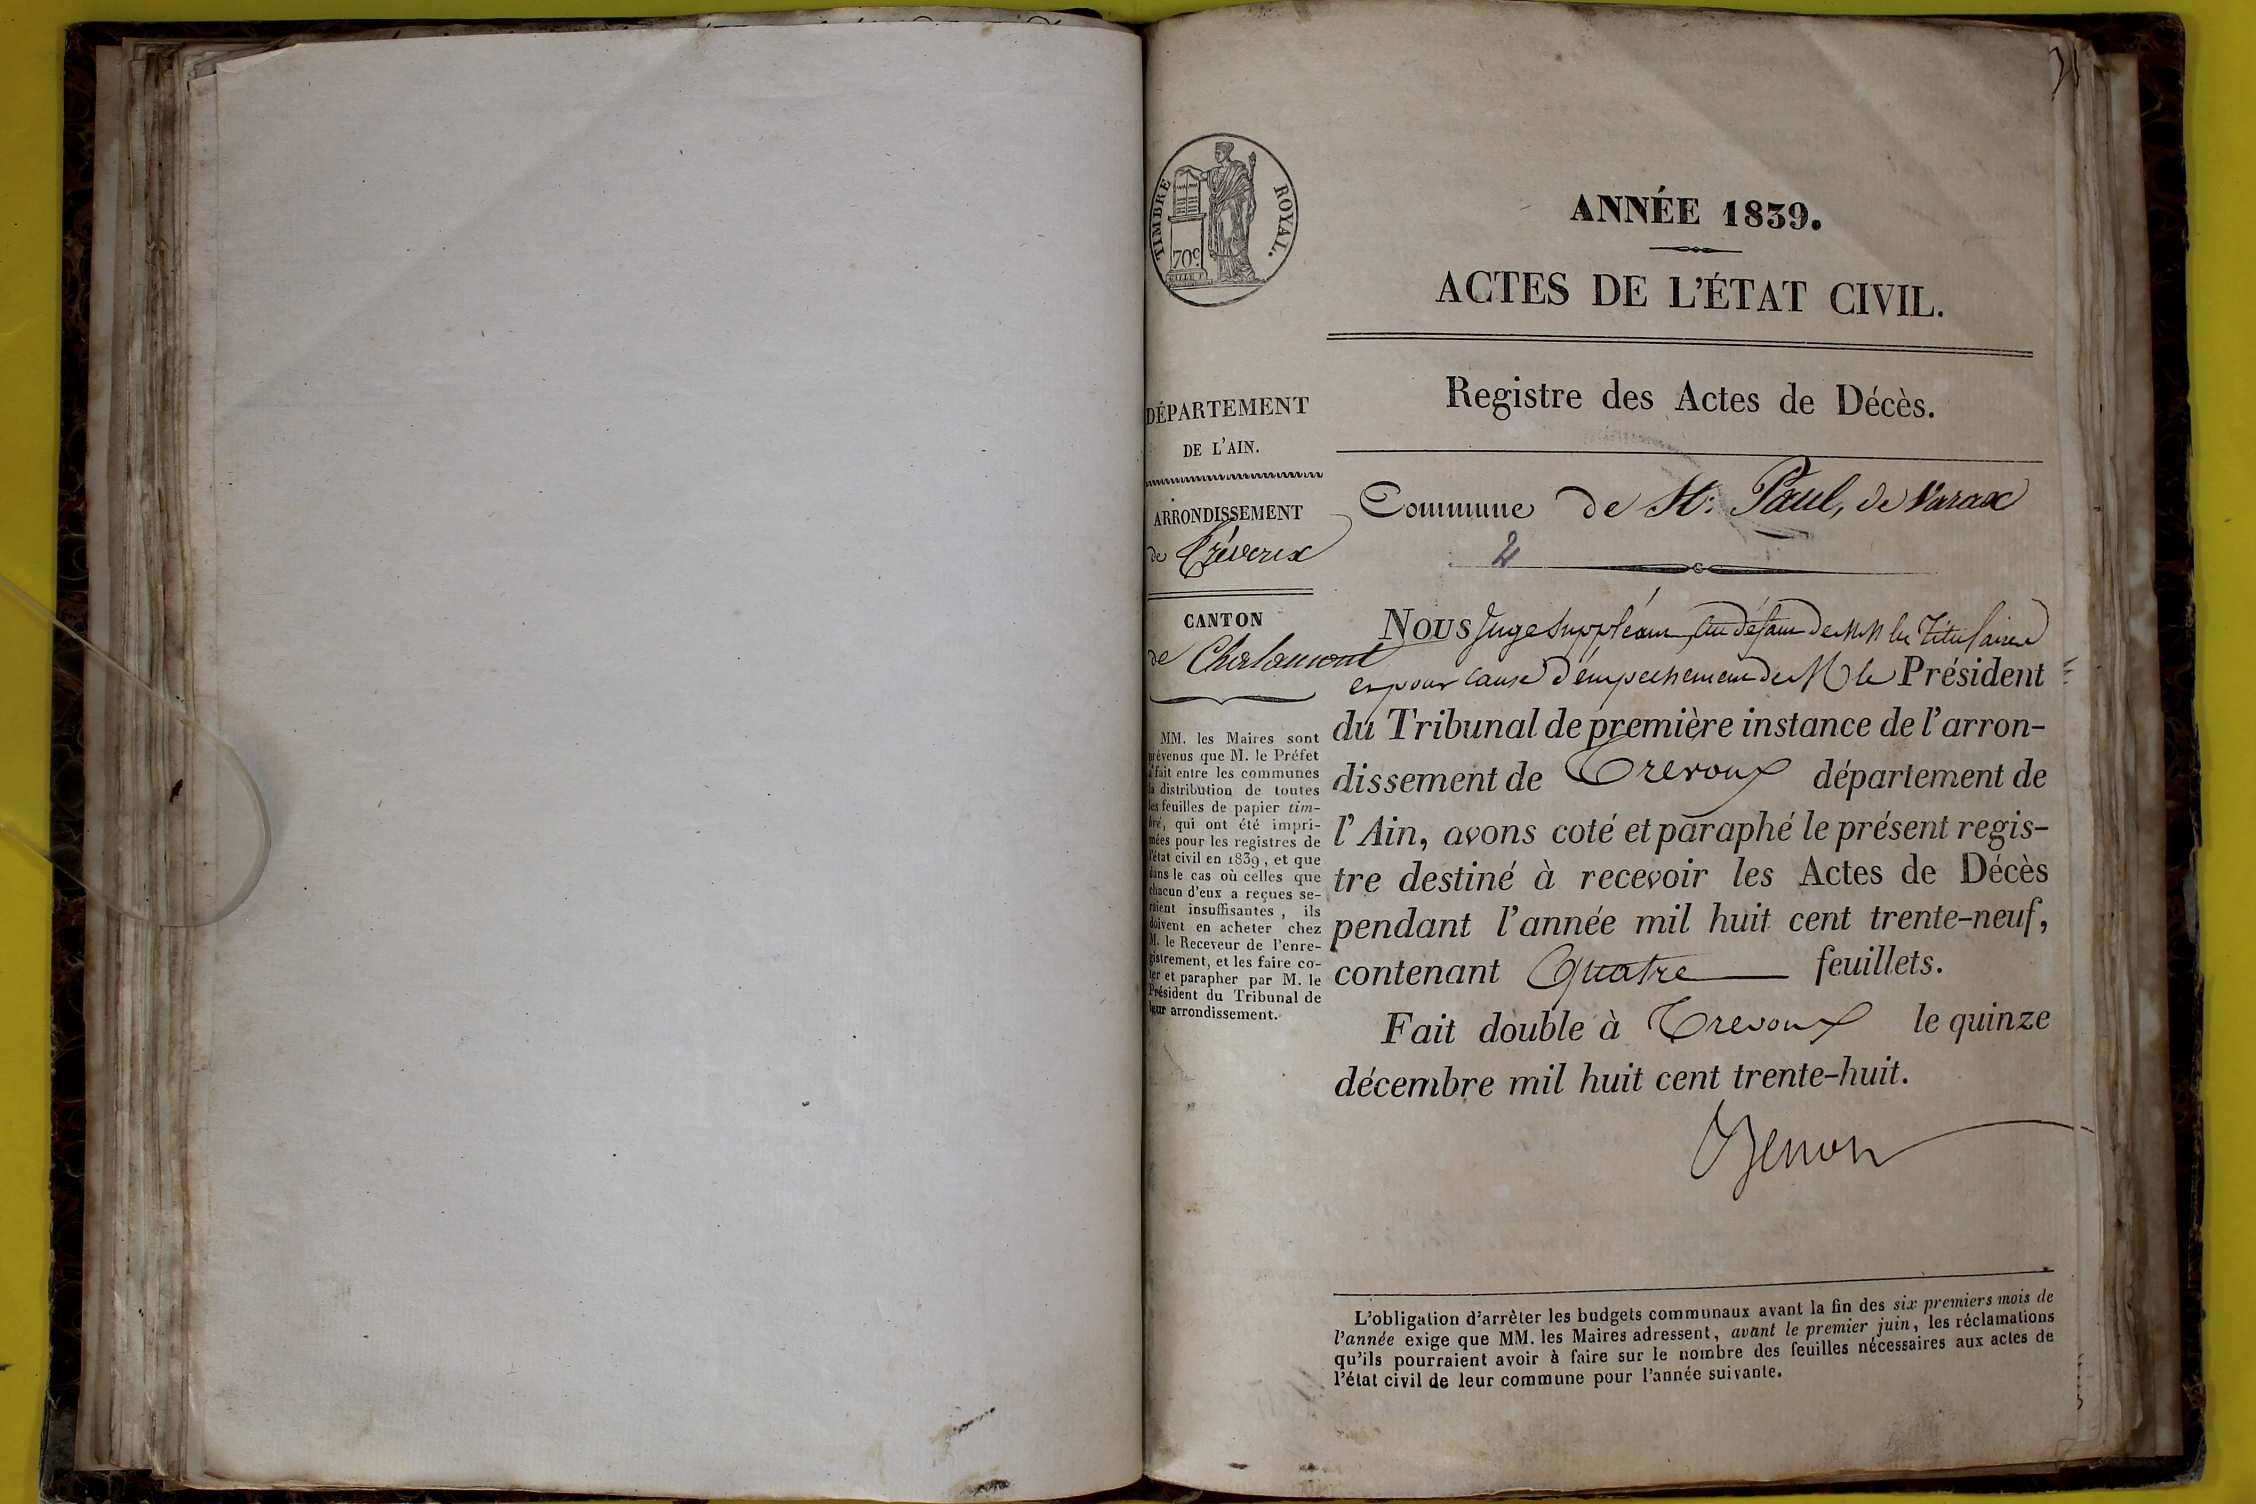 TIMBRE ROYAL.
70c
ANNÉE 1839.
ACTES DE L'ÉTAT CIVIL.
Registre des Actes de Décès.
Commune de St. Paul, de Varax
4
DÉPARTEMENT
DE L'AIN.
ARRONDISSEMENT
de Trévoux
CANTON
de Chalamont
MM. les Maires sont
prévenus que M. le Préfet
a fait entre les communes
la distribution de toutes
les feuilles de papier tim-
bré, qui ont été impri-
mées pour les registres de
l'état civil en 1839, et que
dans le cas où celles que
chacun d'eux a reçues se-
raient insuffisantes, ils
doivent en acheter chez
M. le Receveur de l'enre-
gistrement, et les faire co-
ter et parapher par M. le
Président du Tribunal de
leur arrondissement.
NOUS Juge Suppléant au défaut de MM les Titulaires
et pour cause d'empechement de M le Président
du Tribunal de première instance de l'arron-
dissement de Trevoux département de
l'Ain, avons coté et paraphé le présent regis-
tre destiné à recevoir les Actes de Décès
pendant l'année mil huit cent trente-neuf,
contenant Quatre feuillets.
Fait double à Trevoux le quinze
décembre mil huit cent trente-huit.
L'obligation d'arrêter les budgets communaux avant la fin des six premiers mois de
l'année exige que MM. les Maires adressent, avant le premier juin, les réclamations
qu'ils pourraient avoir à faire sur le nombre des feuilles nécessaires aux actes de
l'état civil de leur commune pour l'année suivante.